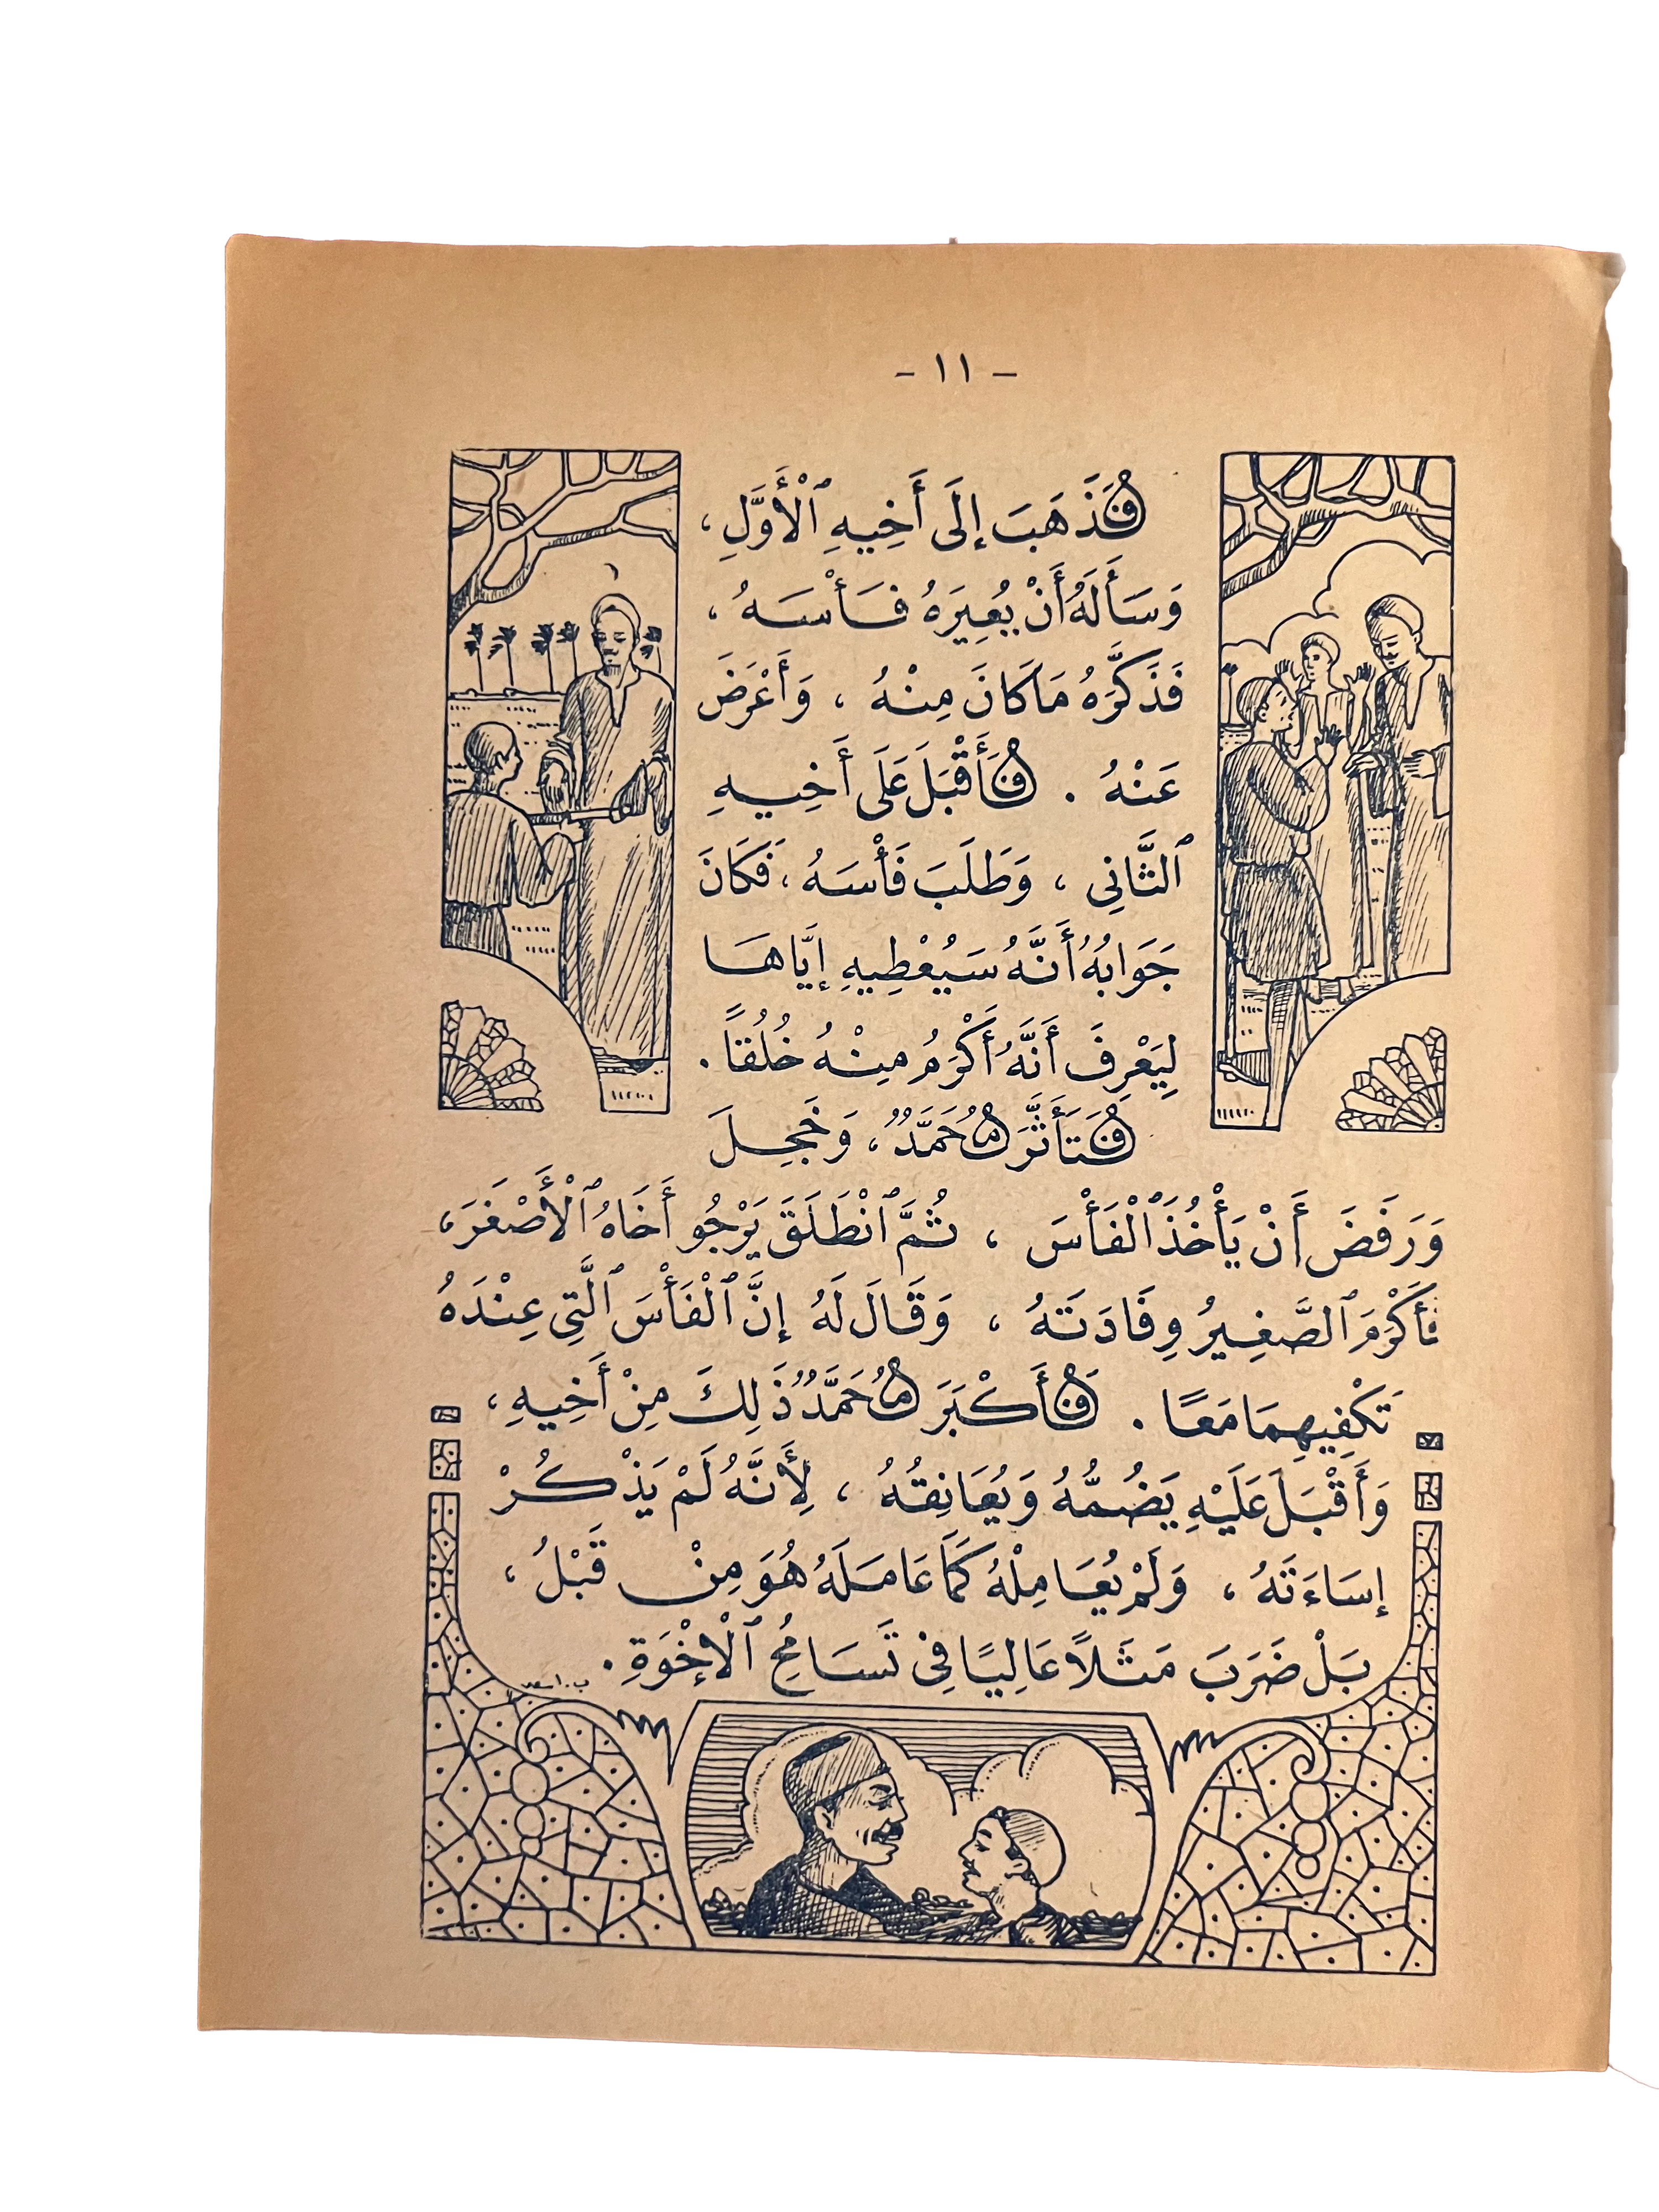 - ١١ -
فَذَهَبَ إِلَى أَخِيهِ ٱلْأَوَّلِ ،
وَسَأَلَهُ أَنْ يُعِيرَهُ فَأْسَهُ ،
فَذَكَّرَهُ مَا كَانَ مِنْهُ ، وَأَعْرَضَ
عَنْهُ . فَأَقْبَلَ عَلَى أَخِيهِ
ٱلثَّانِي ، وَطَلَبَ فَأْسَهُ ، فَكَانَ
جَوَابُهُ أَنَّهُ سَيُعْطِيهِ إِيَّاهَا
لِيَعْرِفَ أَنَّهُ أَكْرَمُ مِنْهُ خُلُقاً .
فَتَأَثَّرَ مُحَمَّدٌ ، وَخَجِلَ
وَرَفَضَ أَنْ يَأْخُذَ ٱلْفَأْسَ ، ثُمَّ ٱنْطَلَقَ يَرْجُو أَخَاهُ ٱلْأَصْغَرَ ،
فَأَكْرَمَ ٱلصَّغِيرُ وِفَادَتَهُ ، وَقَالَ لَهُ إِنَّ ٱلْفَأْسَ ٱلَّتِي عِنْدَهُ
تَكْفِيهِمَا مَعًا . فَأَكْبَرَ مُحَمَّدٌ ذَلِكَ مِنْ أَخِيهِ ،
وَأَقْبَلَ عَلَيْهِ يَضُمُّهُ وَيُعَانِقُهُ ، لِأَنَّهُ لَمْ يَذْكُرْ
إِسَاءَتَهُ ، وَلَمْ يُعَامِلْهُ كَمَا عَامَلَهُ هُوَ مِنْ قَبْلُ ،
بَلْ ضَرَبَ مَثَلاً عَالِيًا فِي تَسَامُحِ ٱلْإِخْوَةِ .